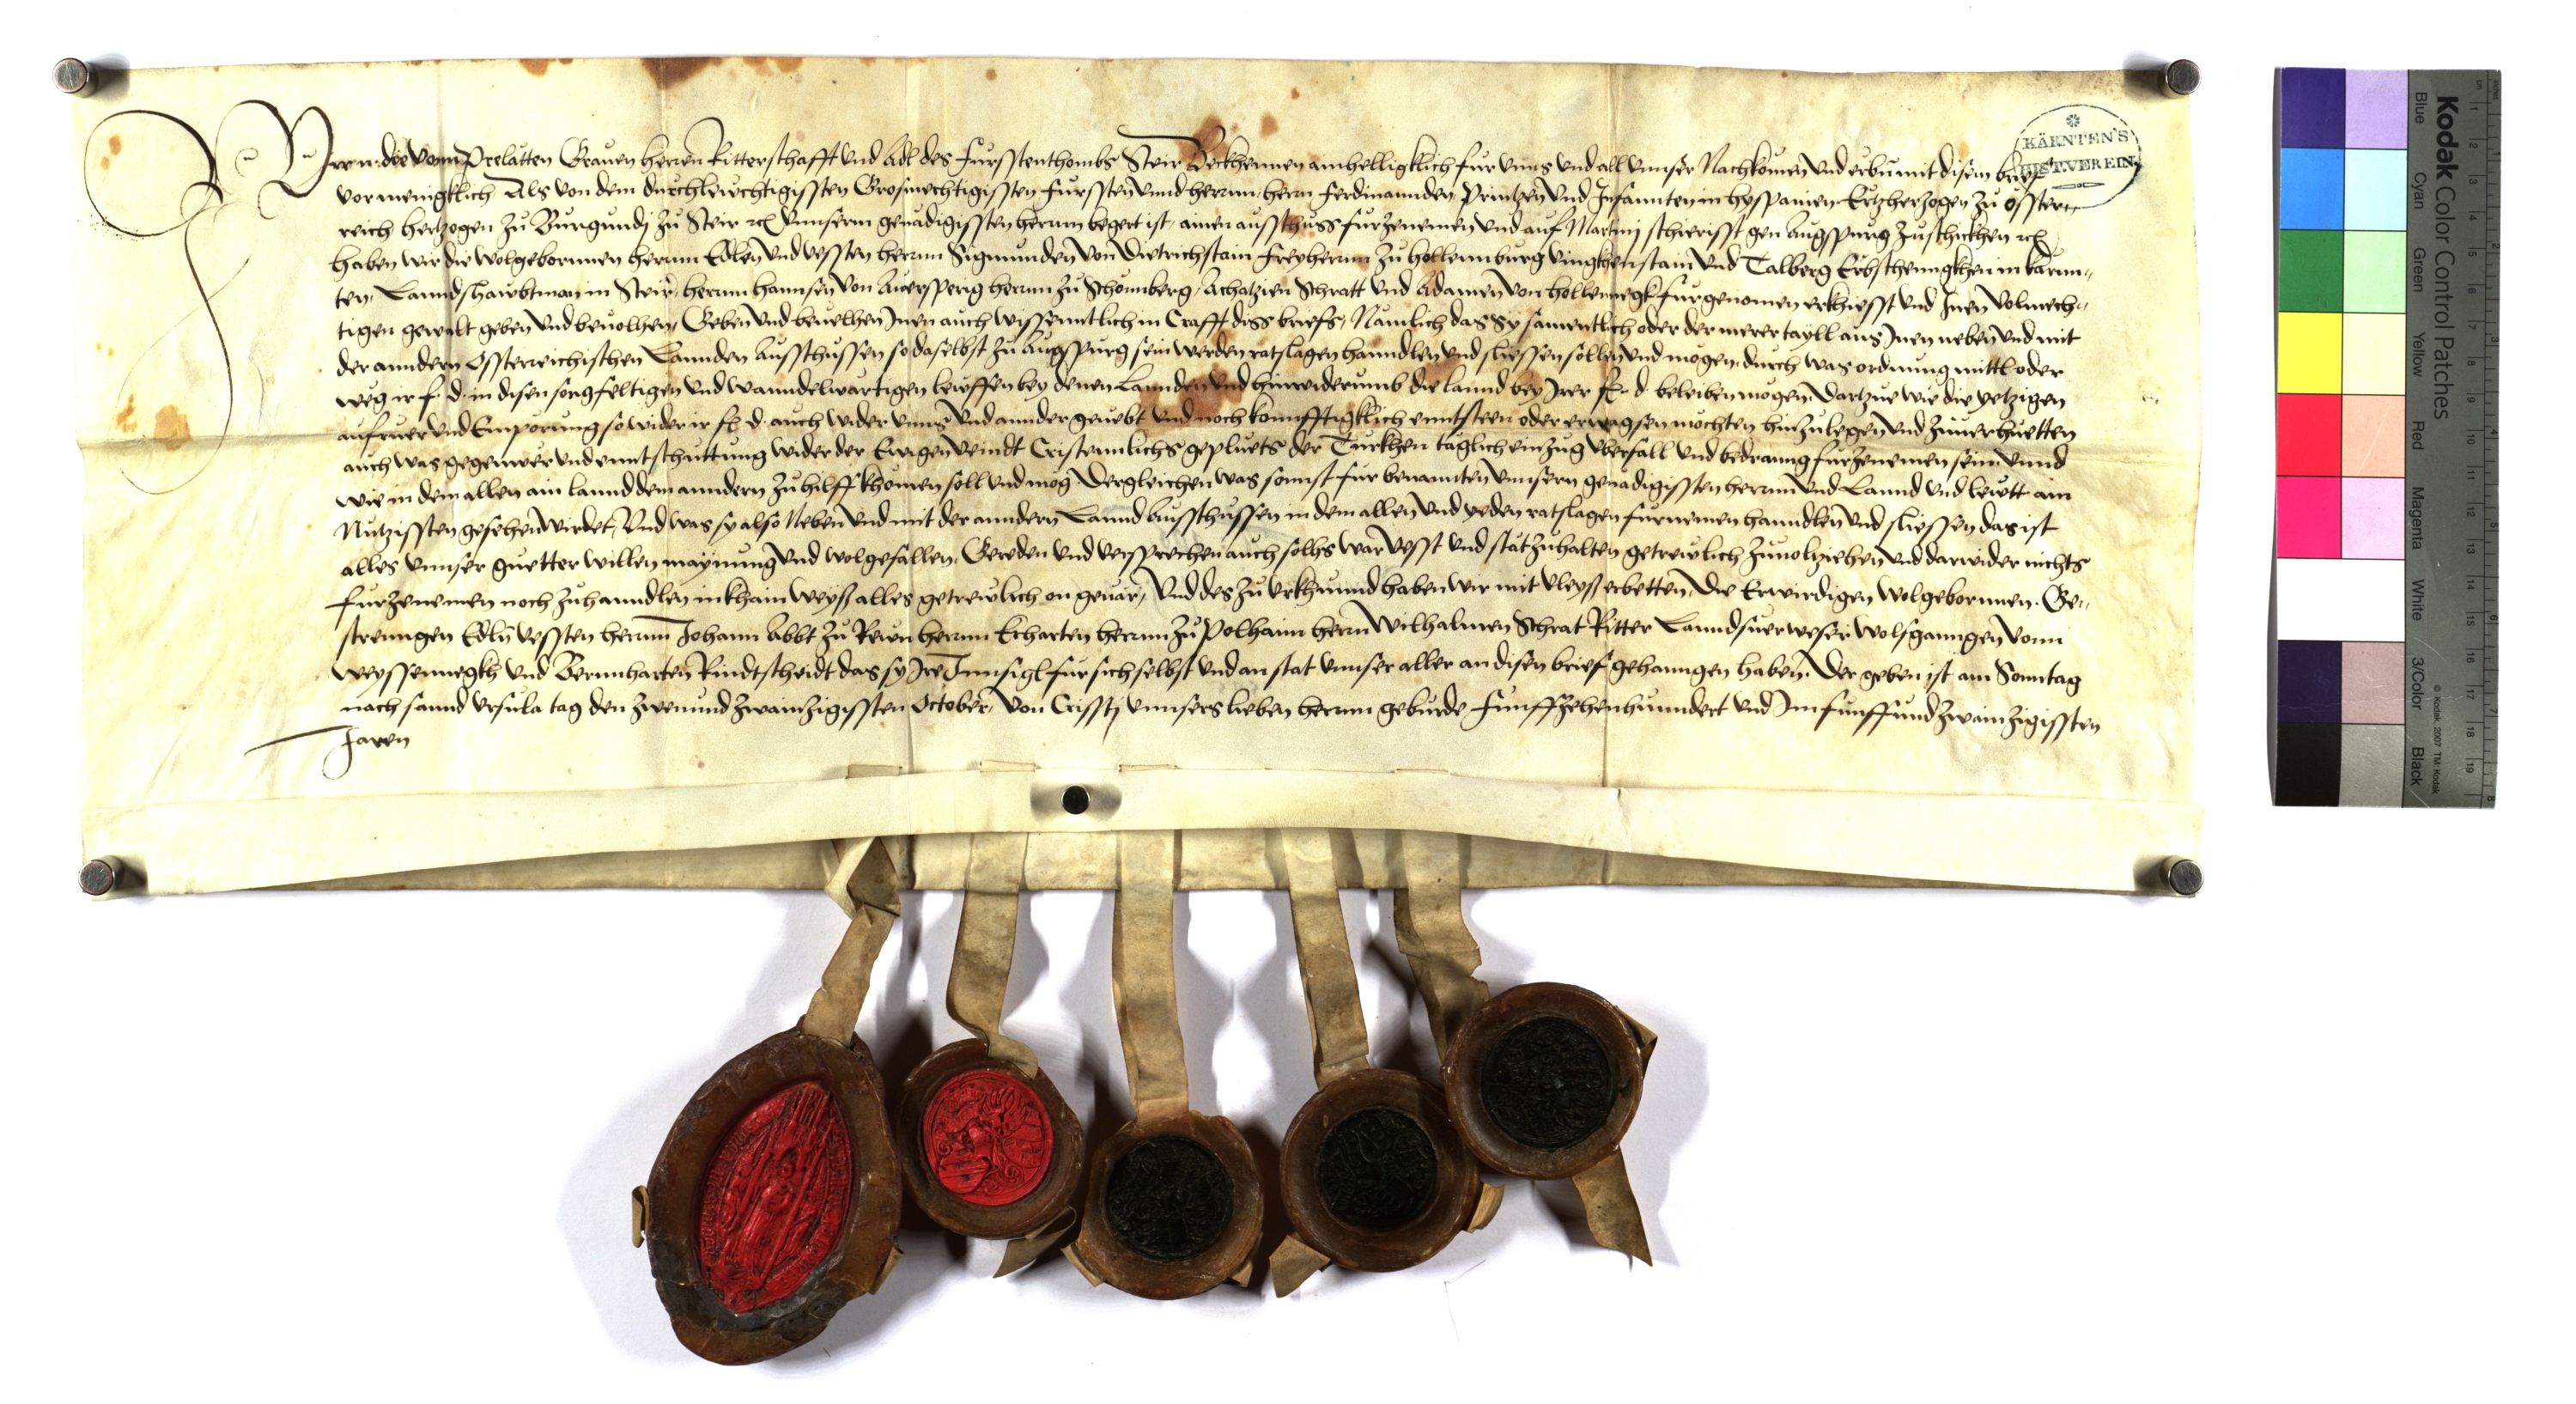 Wir n. die vonn Prelatten Grauen herren Ritterschafft vnd Adl des Furstenthombs Steir Beckhennen ainhelligklich fur vnns vnd all vnnser Nachkomen vnd erbn mit disem brief
vor menigklich Als von dem durchleuchtigissten Grosmechtigissten Furssten vnnd herrnn herrn Ferdinannden Printzen vnd Infannten in hyspanien Ertzherzogen zu Osster-
reich hertzogen zu Burgundj zu Steir rc Vnnserm genadigissten herrnn begert ist, ainen ausschuss furzenemen vnd auf Martinj schierisst gen Augspurg zuschickhen rc
haben wir die wolgebornnen herrnn Edlen vnd vessten herrnn Sigmunden von Dietrichstain Freyherrnn zu hollennburg vingkhenstain vnd Talberg Erbschennkhen in kärnn-
ten, Lanndshawbtman in Steir, herrnn hannsen von Auersperg herrnn zu Schönnberg, Achatzien Schratt vnd Adamen von hollennegk furgenomen erkhiesst vnd Inen volmech-
tigen gewalt geben vnd beuolhen, Geben vnd beuelhen Inen auch wissenntlich in Crafft diss briefs, Namlich das sy samentlich oder der merer tayll aus Inen neben vnd mit
der anndern Osterreichischen Lannden Ausschussen so daselbst zu Augspurg sein werden ratslagen hanndlen vnd sliessen sollen vnd mögen, durch was ordnung mittl oder
weg ir f. d. in disen sorgfeltigen vnd wanndelwartigen lewffen bey denen Lannden vnd hinwiderumb die lannd bey Irer f. d. beleiben mögen, Dartzue wie die yetzigen
aufruer vnd Emporung so wider ir f. d. auch wider vnns vnd annder geuebt vnd noch konnfftigklich enntsteen oder erwagsen möchten hinzulegen vnd zuuerhuetten
auch was gegenwer vnd enntschuttung wider der Ewigen veindt Cristennlichs gepluets der Turkhen täglich einzug vberfall vnd bedranng furzenemen sein. vnnd
wie in dem allen ain lannd dem anndern zu hilff khomen soll vnd mog Dergleichen was sonnst fur benannten vnnsern genadigissten herrnn vnd Lannd vnd lewtt am
Nutzissten gesehen wirdet, Vnd was sy also Neben vnd mit der anndern Lannd Ausschussen in dem allen vnd yeden ratslagen furnemen hanndlen vnd sliessen das ist
alles vnnser guetter willen maynung vnd wolgefallen, Gereden vnd versprechen auch solhs war vesst vnd stät zuhalten getrewlich zuuolziehen vnd darwider nichts
furzenemen noch zuhanndlen in khain weyß alles getrewlich on geuär, Vnd des zu vrkhunnd haben wir mit vleyß erbetten, Die Erwirdigen Wolgebornnen. Ge-
strenngen Edln vessten herrnn Johann Abbt zu Rewn herrnn Erharten herrnn zu Polhaim herrn Wilhalmen Schrat Ritter Lanndsuerweser Wolfganngen vonn
Weyssennegkh vnd Bernnharten Rindtscheidt das sy Ire Innsigl fur sich selbst vnd an stat vnnser aller an disen brief gehanngen haben. Der geben ist am Sonntag
nach sannd Vrsula tag den zwenundzwainzigissten October, Von Cristj vnnsers lieben herrnn geburde Funffzehenhunndert vnd Im funffundzwainzigissten
Jaren
KÄRNTEN'S
HIST. VEREIN
Kodak Color Control Patches
© Kodak, 2007 TM: Kodak
Blue Cyan Green Yellow Red Magenta White 3/Color Black
cm 1 2 3 4 5 6 7 8 9 10 11 12 13 14 15 16 17 18 19